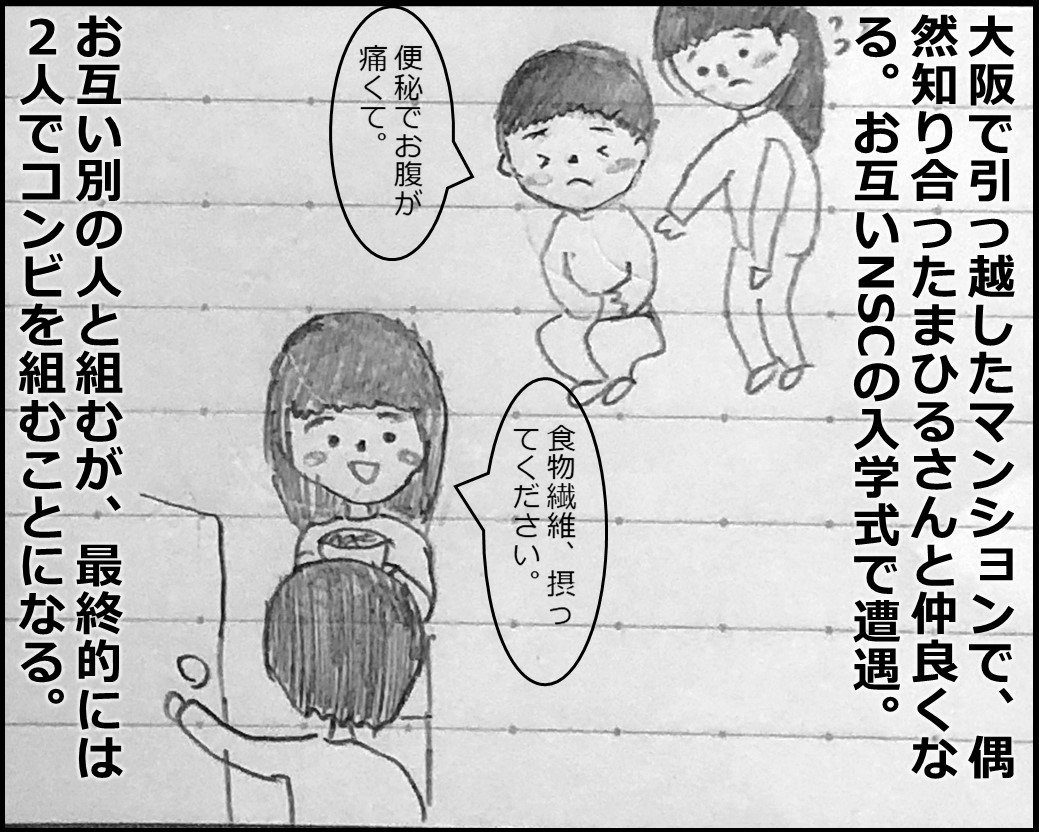 大阪で引っ越したマンションで、偶
然知り合ったまひるさんと仲良くな
る。お互いNSCの入学式で遭遇。
??
便秘でお腹が
痛くて。
食物繊維、摂っ
てください。
お互い別の人と組むが、最終的には
2人でコンビを組むことになる。